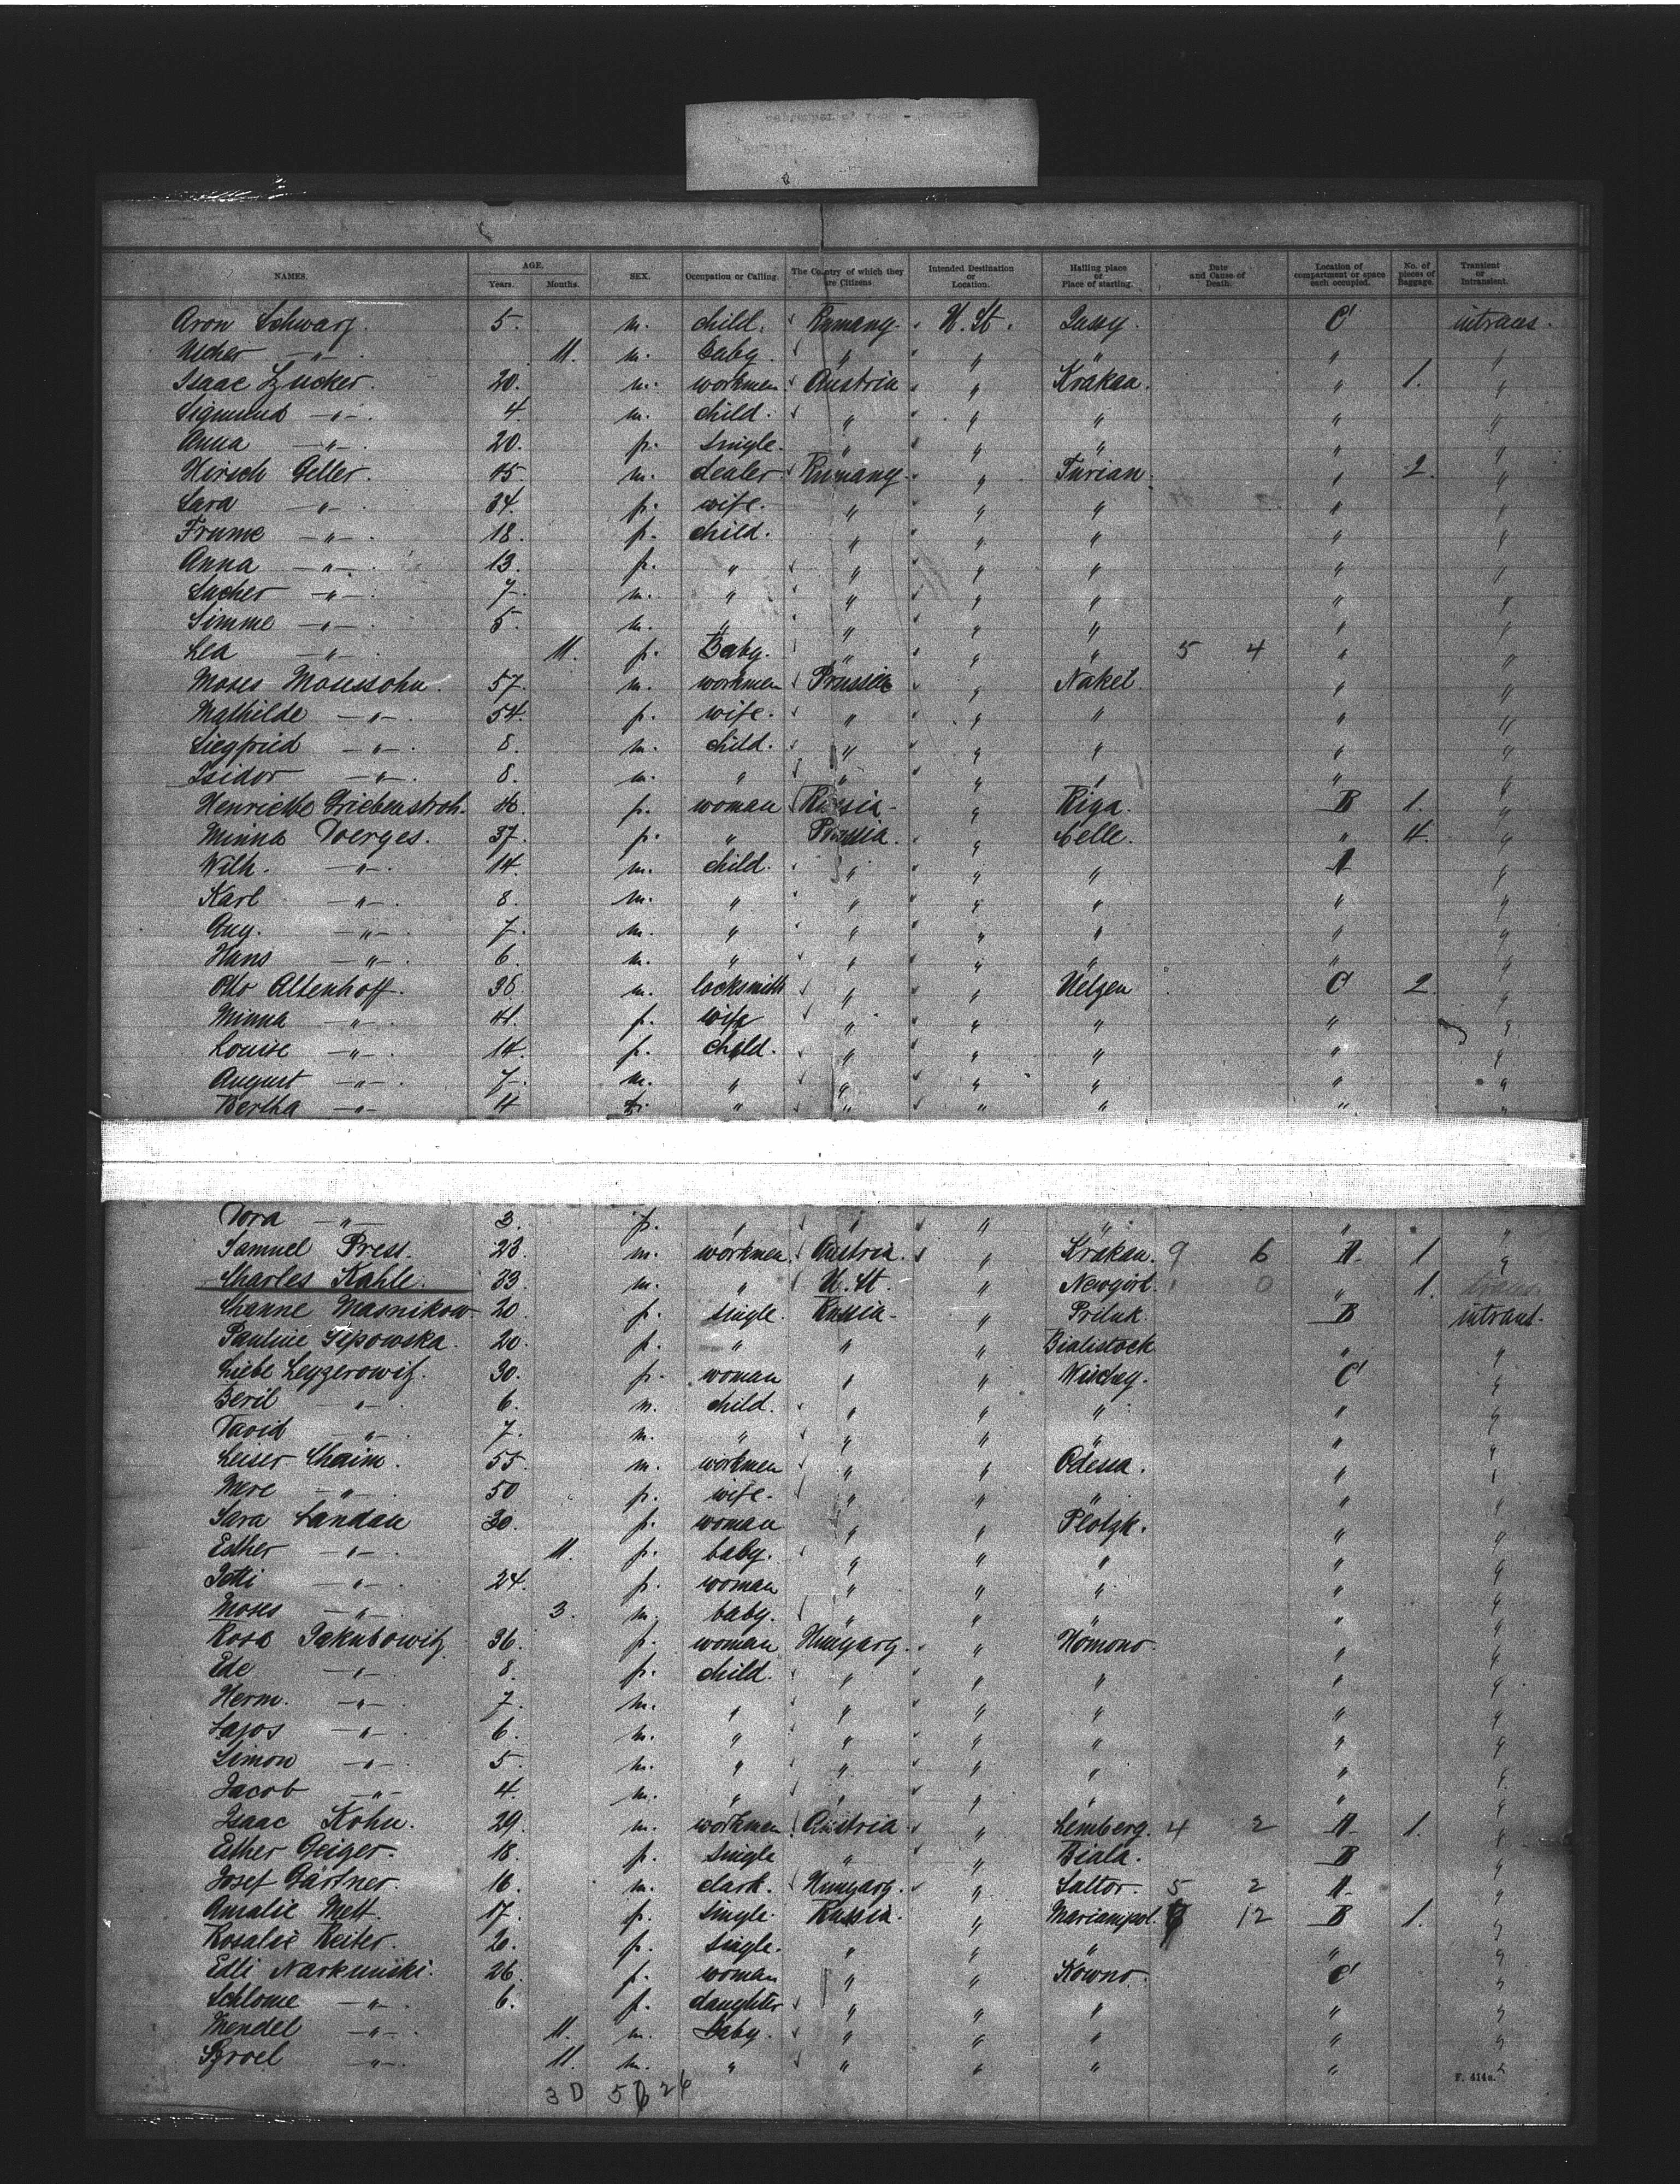 NAMES. AGE. Years. Months. SEX. Occupation or Calling. The Country of which they are Citizens Intended Destination or Location. Hailing place or Place of starting. Date and Cause of Death. Location of compartment or space each occupied. No. of pieces of Baggage. Transient or Intransient.
Aron Schwarz. 5. m. child. Rumany. U. St. Jassy. C intrans.
Uscher -"-. 11. m. baby. " " " " "
Isaac Zucker. 20. m. workmen Austria " Krakau. " 1. "
Sigmund -"-. 4 m. child. " " " " "
Anna -"-. 20. f. single. " " " " "
Hirsch Geller. 45. m. dealer Rumany. " Turian. " 2. "
Sara -"-. 34. f. wife. " " " " "
Frume -"-. 18. f. child. " " " " "
Anna -"-. 13. f. " " " " " "
Sacher -"-. 7. m. " " " " " "
Simme -"-. 5. m. " " " " " "
Lea -"-. 11. f. Baby. " " " 5 4 " "
Moses Mosessohn. 57. m. workmen Prussia " Nakel. " "
Mathilde -"-. 54. f. wife. " " " " "
Siegfried -"-. 8. m. child. " " " " "
Isidor -"-. 8. m. " " " " " "
Henriette Griebenstroh. f. woman Russia - " Riga. B 1. "
Minna Doerges. 37. f. " Prussia. " Celle. " 4. "
Wilh. -"-. 14. m. child. " " " A "
Karl -"-. 8. m. " " " " " "
Aug. -"-. 7. m. " " " " " "
Hans -"-. 6. m. " " " " " "
Otto Altenhoff. 36. m. locksmith " " Uelzen C 2. "
Minna -"-. 41. f. wife " " " " "
Louise -"-. 14. f. child. " " " " "
August -"-. 7. m. " " " " " "
Bertha -"- 4 f. " " " " " "
Dora -"- 3. f. " " " " " "
Samuel Press. 23. m. workmen. Austria. " Krakau. 9 6 A 1 "
Charles Kahle. 33. m. " U. St. " 0 " 1.
Channe Masnikow 20. f. single. Russia - " Priluk. B intrans.
Pauline Gepowska. 20. f. " " " Bialistock " "
Liebe Leyzerowitz. 30. f. woman " " Wischey. C "
Beril -"-. 6. m. child. " " " " "
David -"-. 7. m. " " " " " "
Leiser Chaim. 55. m. workmen " " Odessa. " "
Mere -"-. 50 f. wife. " " " " "
Sara Landau 30. f. woman " " Plotzk. " "
Esther -"-. 11. f. baby. " " " " "
Jetti -"-. 24. f. woman " " " " "
Moses -"-. 3. m. baby. " " " " "
Rosa Jakubowitz 36. f. woman Hungary. " Homono. " "
Ede -"-. 8. f. child. " " " " "
Herm. -"-. 7. m. " " " " " "
Lajos -"-. 6. m. " " " " " "
Simon -"-. 5. m. " " " " " "
Jacob -"- 4. m. " " " " " "
Isaac Kohn. 29. m. workman Austria " Lemberg. 4 2 A 1. "
Esther Geiger. 18. f. single " " Biala. B "
Josef Gärtner. 16. m. clark. Hungary. " Saltor. 5 2 A "
Amalie Mett 17. f. single. Russia. " Mariampol. 12 B 1. "
Rosalie Reiter. f. single. " " " " "
Edli Narkunski. 26. f. woman " " Kowno. C "
Schlome -"-. 6. f. daughter " " " " "
Mendel -"-. 11. m. baby. " " " " "
Sroel -"-. 11. m. " " " " " "
F. 414a.
3 D